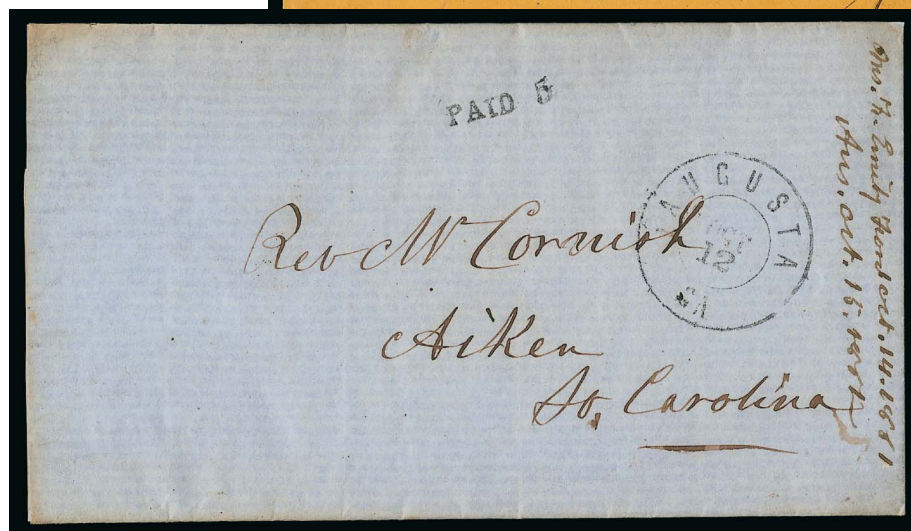 PAID 5
AUGUSTA
OCT
12
Rev Mr Cornish
Aiken
So, Carolina
Emily oct. 14. 1861
Ans. oct. 15. 1861